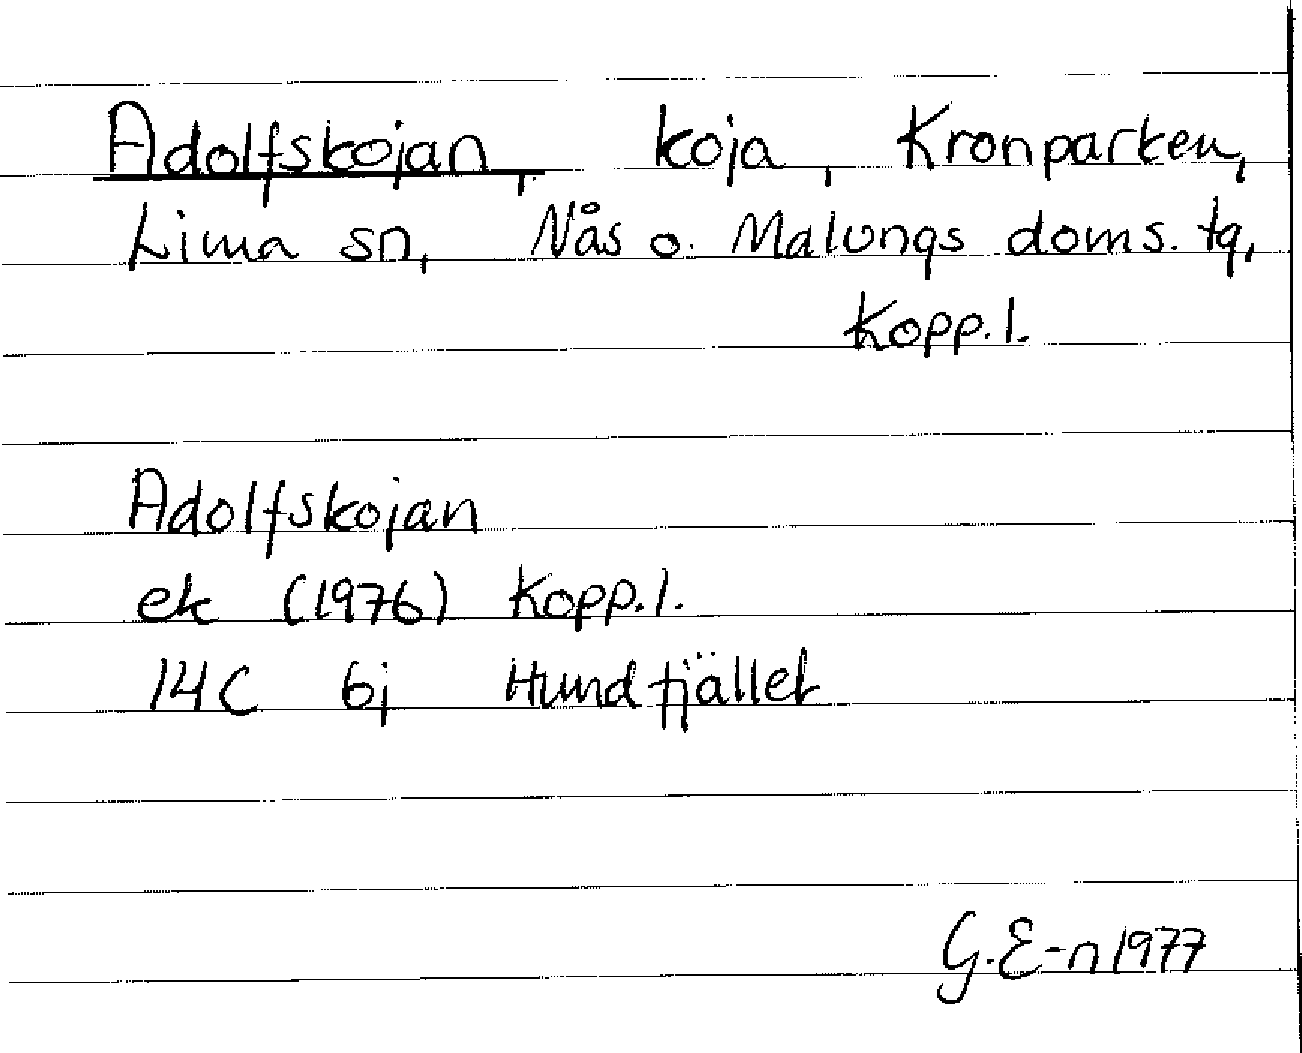 Adolfskojan, koja, Kronparken,
Lima sn, Nås o. Malungs doms. tg,
Kopp. l.
Adolfskojan
ek (1976) Kopp. l.
14C 6j Hundfjället
G. E-n 1977